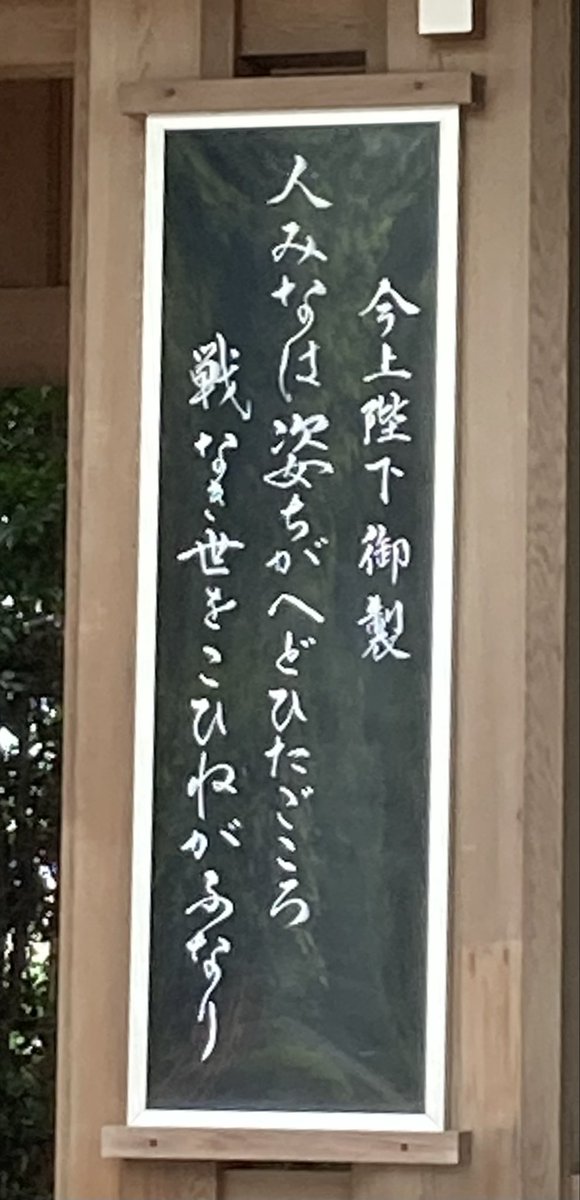 今上陛下御製
人みなは姿ちがへどひたごころ
戦なき世をこひねがふなり